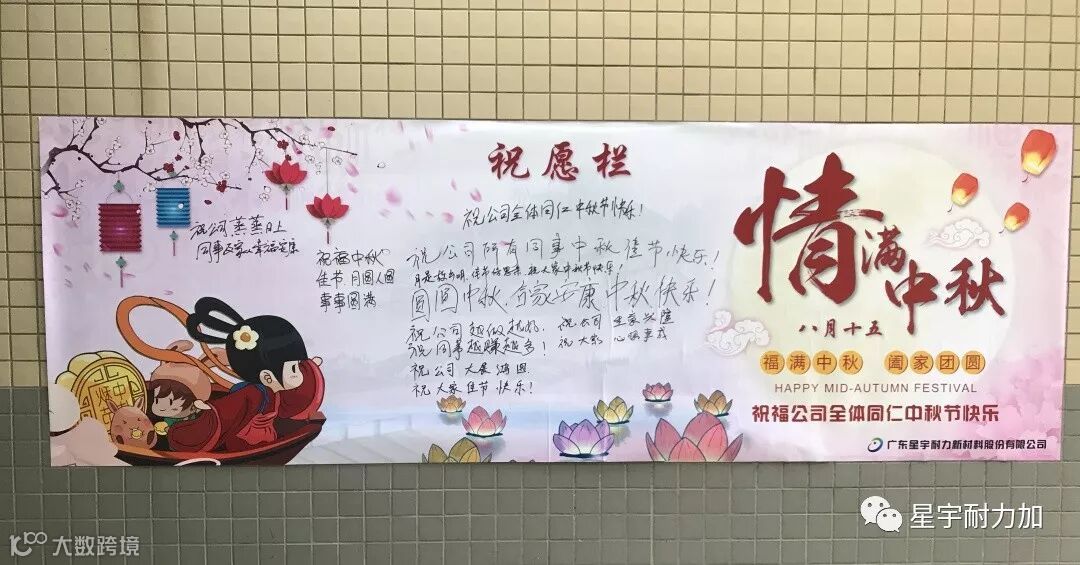 祝愿栏
祝公司蒸蒸日上
祝福中秋
佳节月圆人圆
事事圆满
祝公司全体同仁中秋节快乐!
祝公司所有同事中秋佳节快乐!
圆圆中秋,合家安康中秋快乐!
祝公司越做越好.
祝同事越赚越多!
祝公司大展鸿图
祝大家佳节快乐!
祝大家心想事成
情满中秋
八月十五
福满中秋 阖家团圆
HAPPY MID-AUTUMN FESTIVAL
祝福公司全体同仁中秋节快乐
广东星宇耐力新材料股份有限公司
星宇耐力加
大数跨境